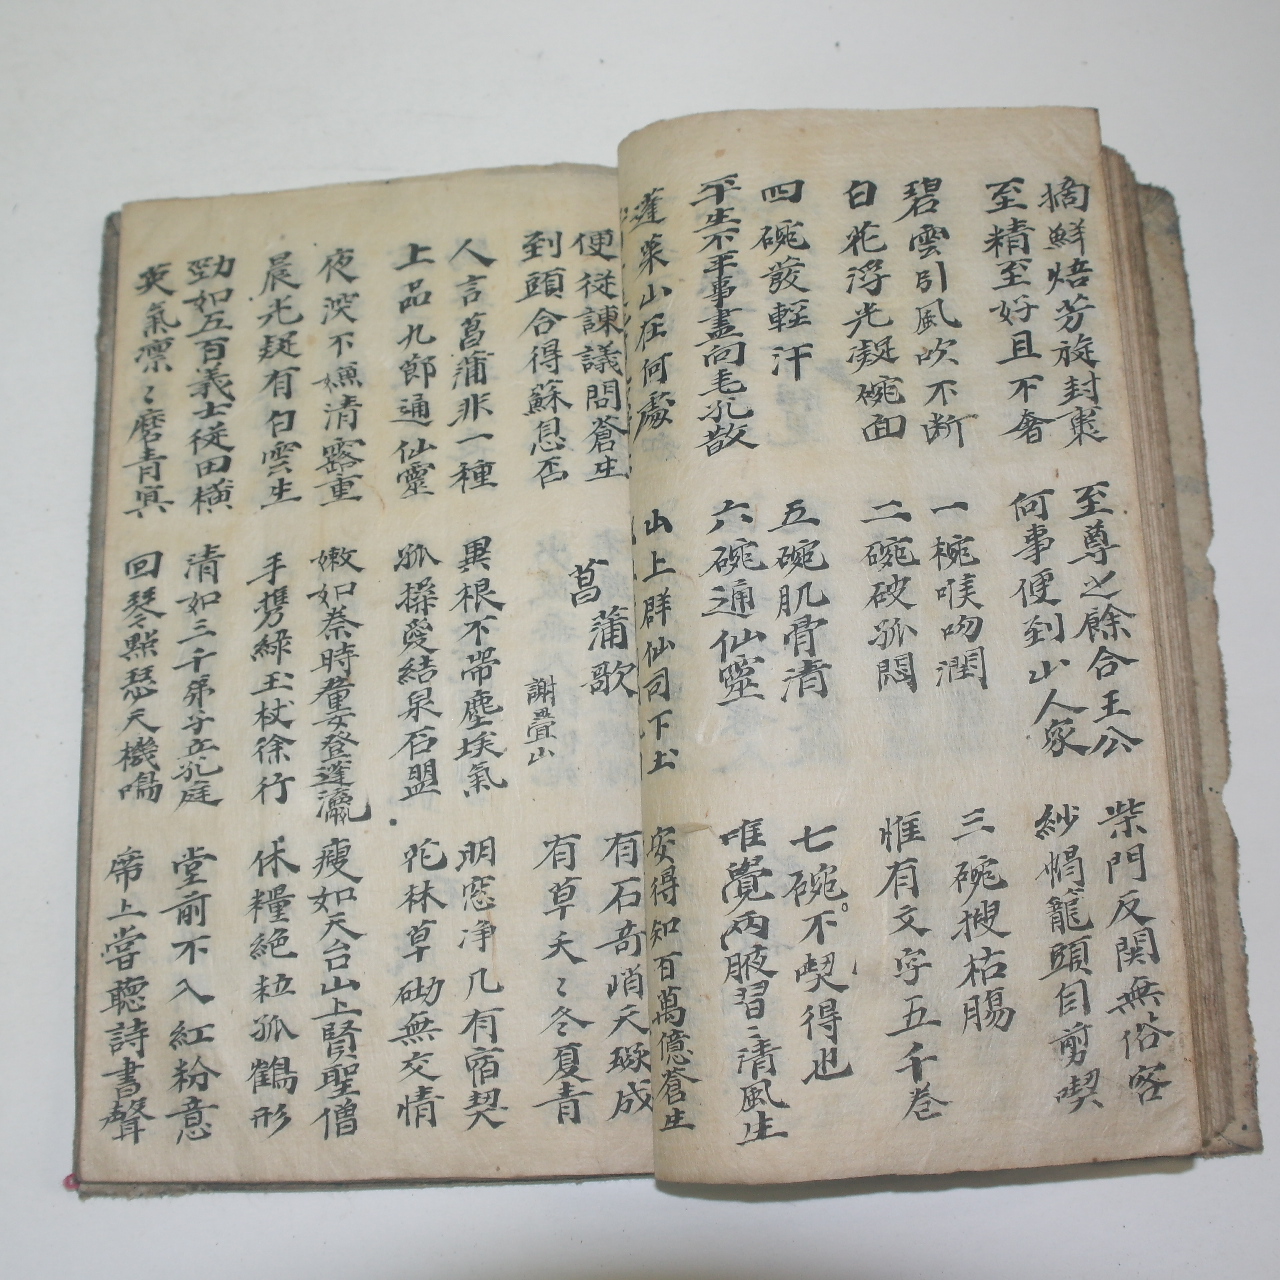 摘鮮焙芳旋封裹
至精至好且不奢
至尊之餘合王公
何事便到山人家
柴門反関無俗客
紗帽籠頭自剪喫
碧雲引風吹不断
白花浮光凝碗面
一椀喉吻潤
二碗破孤悶
三碗搜枯腸
惟有文字五千巻
四碗發輕汗
平生不平事盡向毛孔散
五碗肌骨清
六碗通仙靈
七碗不喫得也
唯覺兩腋習〻清風生
蓬萊山在何處
山上群仙司下土
安得知百萬億蒼生
便從諫議問蒼生
到頭合得蘇息否
菖蒲歌
謝疊山
有石奇峭天琢成
有草夭〻冬夏青
人言菖蒲非一種
上品九節通仙靈
異根不帶塵埃氣
孤操愛結泉石盟
明窓净几有宿契
花林草砌無交情
夜深不嫌清露重
晨光疑有白雲生
嫩如秦時童女登蓬瀛
手携綠玉杖徐行
瘦如天台山上賢聖僧
休糧絕粒孤鶴形
勁如五百義士從田橫
英氣凛〻磨青冥
清如三千弟子立孔庭
回琴點瑟天機鳴
堂前不入紅粉意
席上嘗聽詩書聲